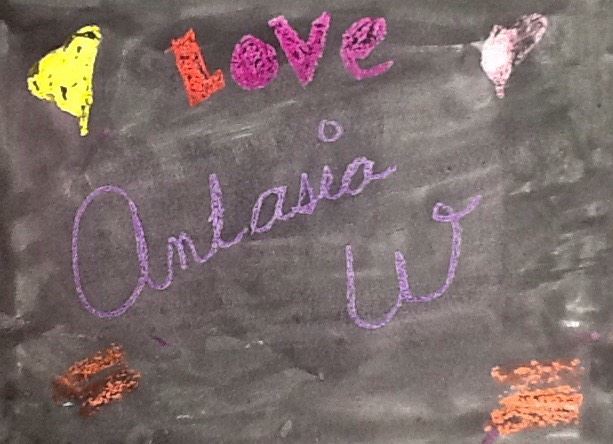 Love
Antasia
W